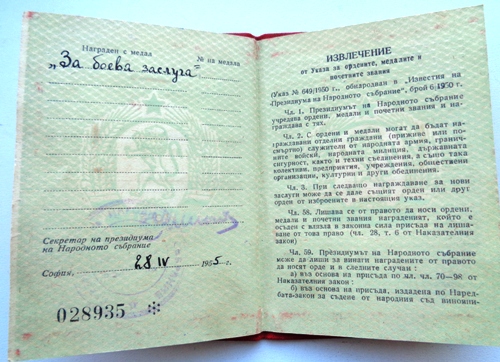 Награден с медал № на медала
„За боева заслуга“
Секретар на президиума
на Народното събрание:
София, 28 IV 1955 г.
028935
ИЗВЛЕЧЕНИЕ
от Указа за ордените, медалите и
почетните звания
(Указ № 649/1950 г., обнародван в „Известия на
Президиума на Народното събрание“, брой 6/1950 г.
Чл. 1. Президиумът на Народното събрание
учредява ордени, медали и почетни звания и на-
граждава с тях.
Чл. 2. С ордени и медали могат да бъдат на-
граждавани отделни граждани (приживе или по-
смъртно) служители от народната армия, гранич-
ните войски, народната милиция, държавната
сигурност, както и техни съединения, а също така
колективи, предприятия, учреждения, обществени
организации, културни и други обединения.
Чл. 3. При следващо награждаване за нови
заслуги може да се даде същият орден или друг
орден от изброените в настоящия указ.
Чл. 58. Лишава се от правото да носи ордени,
медали и почетни звания награденият, който е
осъден с влязла в законна сила присъда на лиша-
ване от това право (чл. 28, т. 6 от Наказателния
закон)
Чл. 59. Президиумът на Народното събрание
може да лиши за винаги наградените от правото
да носят орден и в следните случаи:
а) въз основа на присъда по мл. чл. 70—98 от
Наказателния закон:
б) въз основа на присъда, издадена по Наред-
бата-закон за съдене от народния съд виновни-